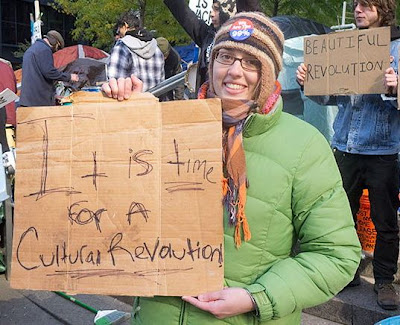 It is time
for a
Cultural Revolution!
BEAUTIFUL
REVOLUTION
99%